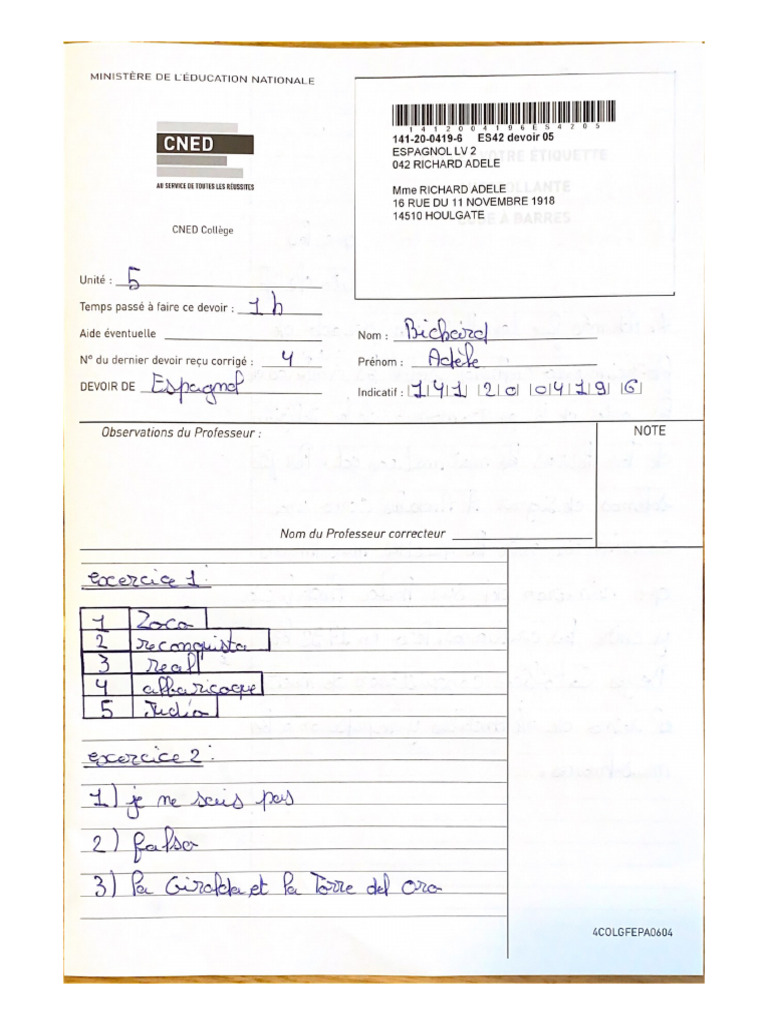 MINISTÈRE DE L'ÉDUCATION NATIONALE
CNED
AU SERVICE DE TOUTES LES RÉUSSITES
CNED Collège
14120041 96ES4205
141-20-0419-6 ES42 devoir 05
ESPAGNOL LV 2
042 RICHARD ADELE
Mme RICHARD ADELE
16 RUE DU 11 NOVEMBRE 1918
14510 HOULGATE
Unité : 5
Temps passé à faire ce devoir : 1h
Aide éventuelle
N° du dernier devoir reçu corrigé : 4
DEVOIR DE Espagnol
Nom : Richard
Prénom : Adèle
Indicatif : 1 4 1 2 0 0 4 1 9 6
Observations du Professeur :
NOTE
Nom du Professeur correcteur
exercice 1 :
1 Zoco
2 reconquista
3 real
4 albaricoque
5 Judío
exercice 2 :
1) je ne sais pas
2) falso
3) la Giralda, et la Torre del oro
4COLGFEPA0604